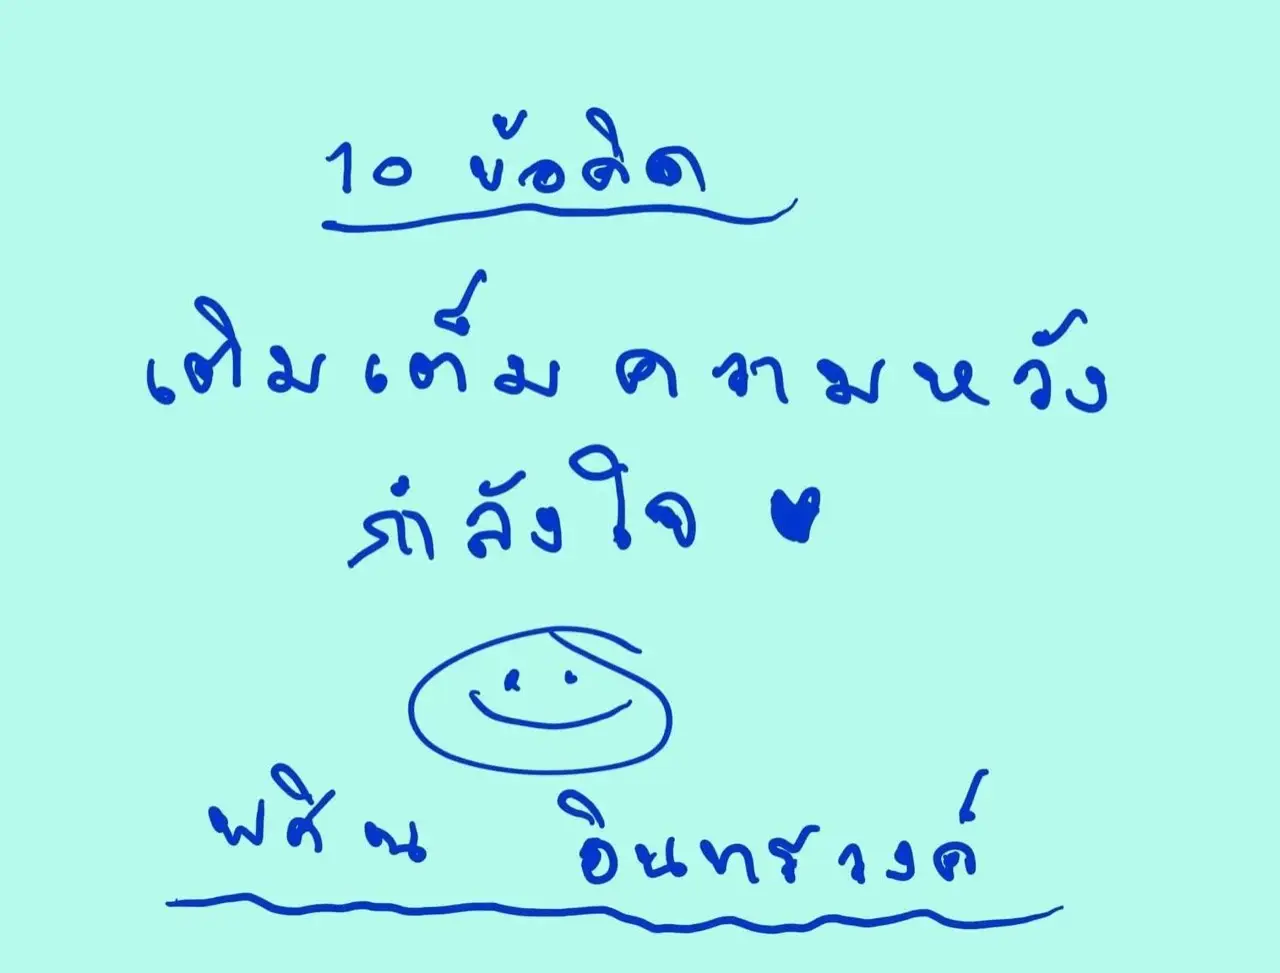 10 ข้อคิด
เติมเต็มความหวัง
กำลังใจ
พศิน อินทรวงค์